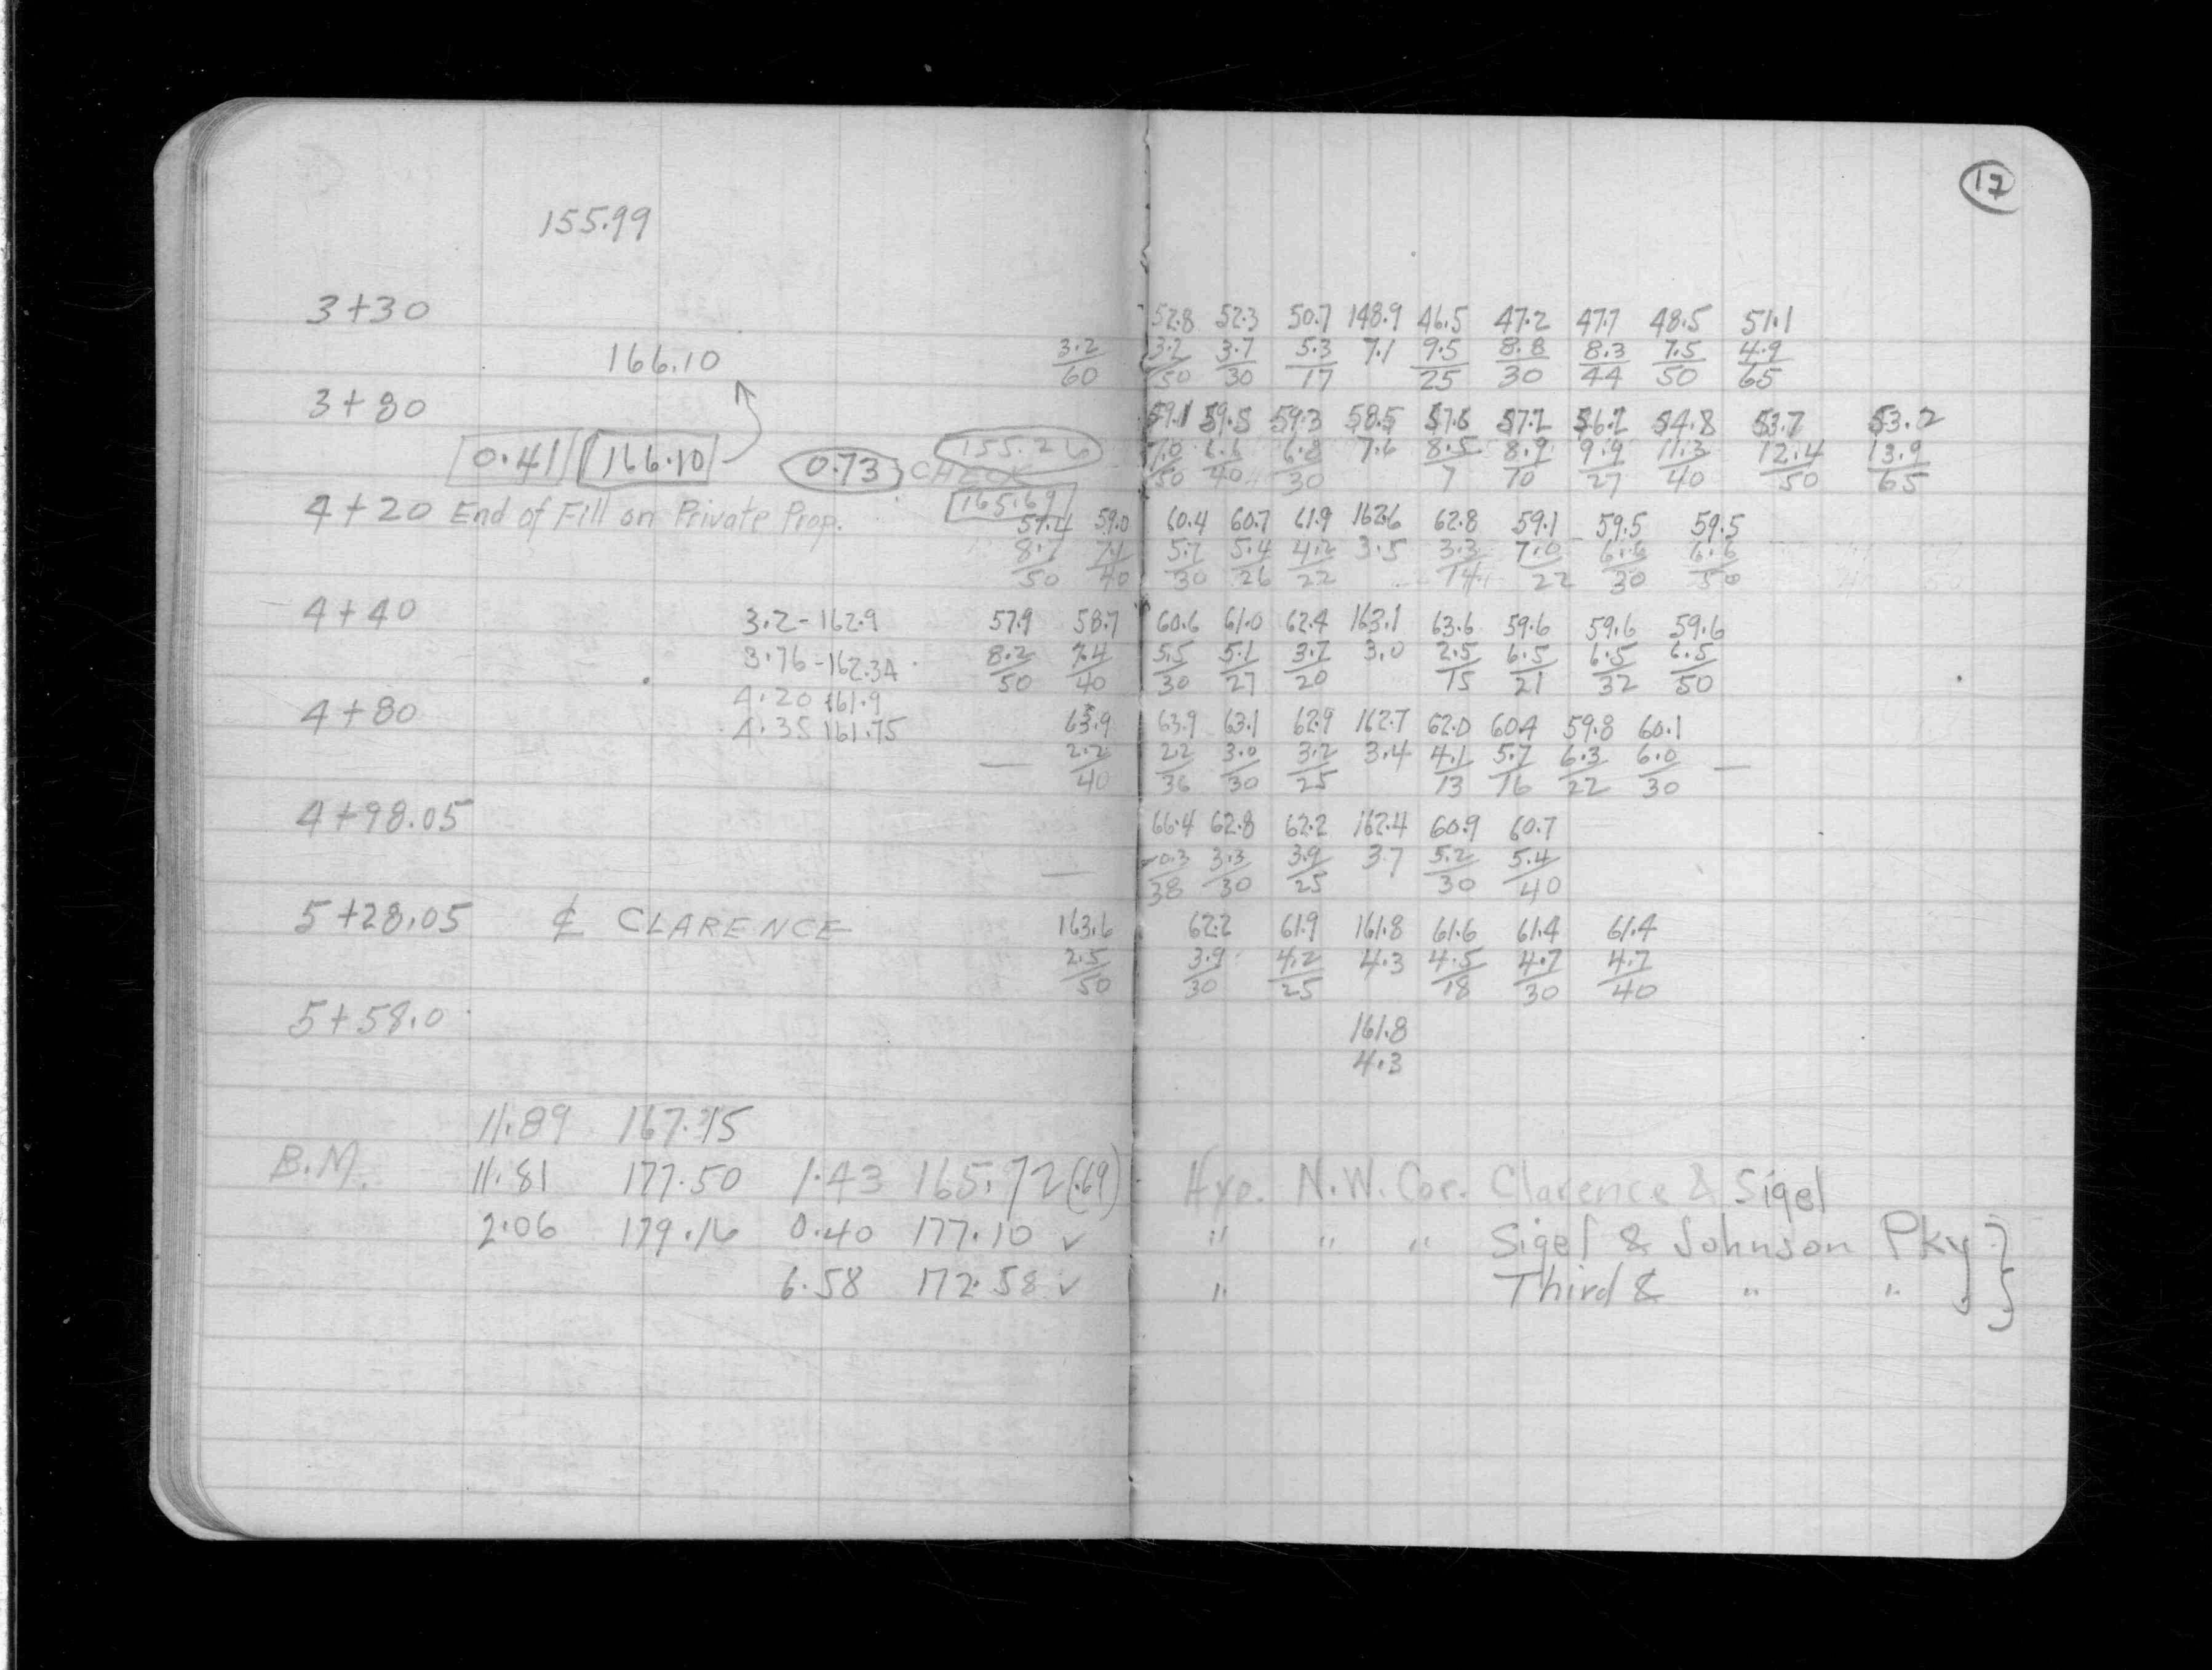 17
155.99
3+30 52.8 52.3 50.7 148.9 46.5 47.2 47.7 48.5 51.1
166.10 3.2/60 3.2/50 3.7/30 5.3/17 7.1 9.5/25 8.8/30 8.3/44 7.5/50 4.9/65
3+80 59.1 59.5 59.3 58.5 57.6 57.2 56.2 54.8 53.7 53.2
0.41 166.10 0.73 CHECK 155.26 7.0/50 6.6/40 6.8/30 7.6 8.5/7 8.9/10 9.9/27 11.3/40 12.4/50 13.9/65
165.69
4+20 End of Fill on Private Prop. 57.4 59.0 60.4 60.7 61.9 162.6 62.8 59.1 59.5 59.5
8.7/50 7.1/40 5.7/30 5.4/26 4.2/22 3.5 3.3/14 7.0/22 6.6/30 6.6/50
4+40 3.2-162.9 57.9 58.7 60.6 61.0 62.4 163.1 63.6 59.6 59.6 59.6
3.76-162.34 8.2/50 7.4/40 5.5/30 5.1/27 3.7/20 3.0 2.5/15 6.5/21 6.5/32 6.5/50
4.20 161.9
4+80 4.35 161.75 63.9 63.9 63.1 62.9 162.7 62.0 60.4 59.8 60.1
— 2.2/40 2.2/36 3.0/30 3.2/25 3.4 4.1/13 5.7/16 6.3/22 6.0/30 —
4+98.05 66.4 62.8 62.2 162.4 60.9 60.7
— -0.3/38 3.3/30 3.9/25 3.7 5.2/30 5.4/40
5+28.05 ₵ CLARENCE 163.6 62.2 61.9 161.8 61.6 61.4 61.4
2.5/50 3.9/30 4.2/25 4.3 4.5/18 4.7/30 4.7/40
5+58.0 161.8
4.3
11.89 167.15
B.M. 11.81 177.50 1.43 165.72(.69) Hyd. N.W. Cor. Clarence & Sigel
2.06 179.16 0.40 177.10 ✓ " " " Sigel & Johnson Pky }
6.58 172.58 ✓ " Third & " " }